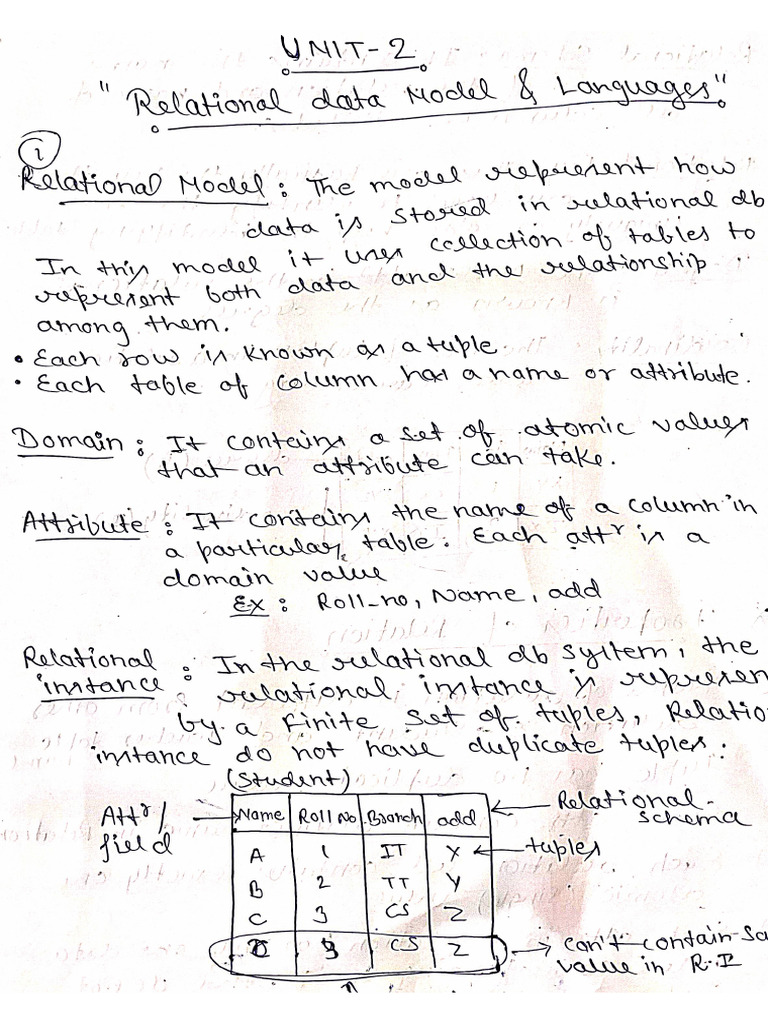 UNIT-2
"Relational data Model & Languages"
1
Relational Model: The model represent how
data is stored in relational db
In this model it uses collection of tables to
represent both data and the relationship
among them.
• Each row is known as a tuple.
• Each table of column has a name or attribute.
Domain: It contains a set of atomic values
that an attribute can take.
Attribute: It contains the name of a column in
a particular table. Each attr is a
domain value
Ex: Roll-no, Name, add
Relational : In the relational db system, the
instance relational instance is represen
by a finite set of tuples, Relatio
instance do not have duplicate tuples.
(Student)
Attr/ Name Roll No Branch add Relational-
field schema
A 1 IT X tuples
B 2 TT Y
C 3 CS Z
C 3 CS Z can't contain sa
value in R.I